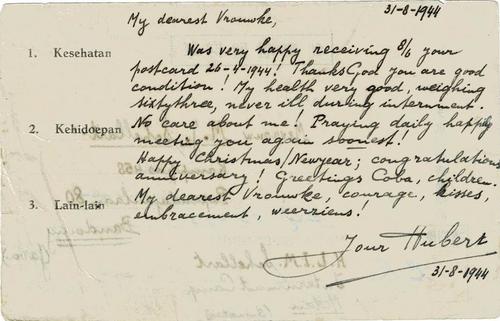 31-8-1944
My dearest Vrouwke,
1. Kesehatan
Was very happy receiving 8/6 your
postcard 26-4-1944! Thanks God you are good
condition! My health very good, weighing
sixtythree, never ill during internment.
2. Kehidoepan
No care about me! Praying daily happy
meeting you again soonest!
Happy Christmas/Newyear; congratulations
anniversary! Greetings Coba, children.
3. Lain-lain
My dearest Vrouwke, courage, kisses,
embracement, weerziens!
Your Hubert
31-8-1944